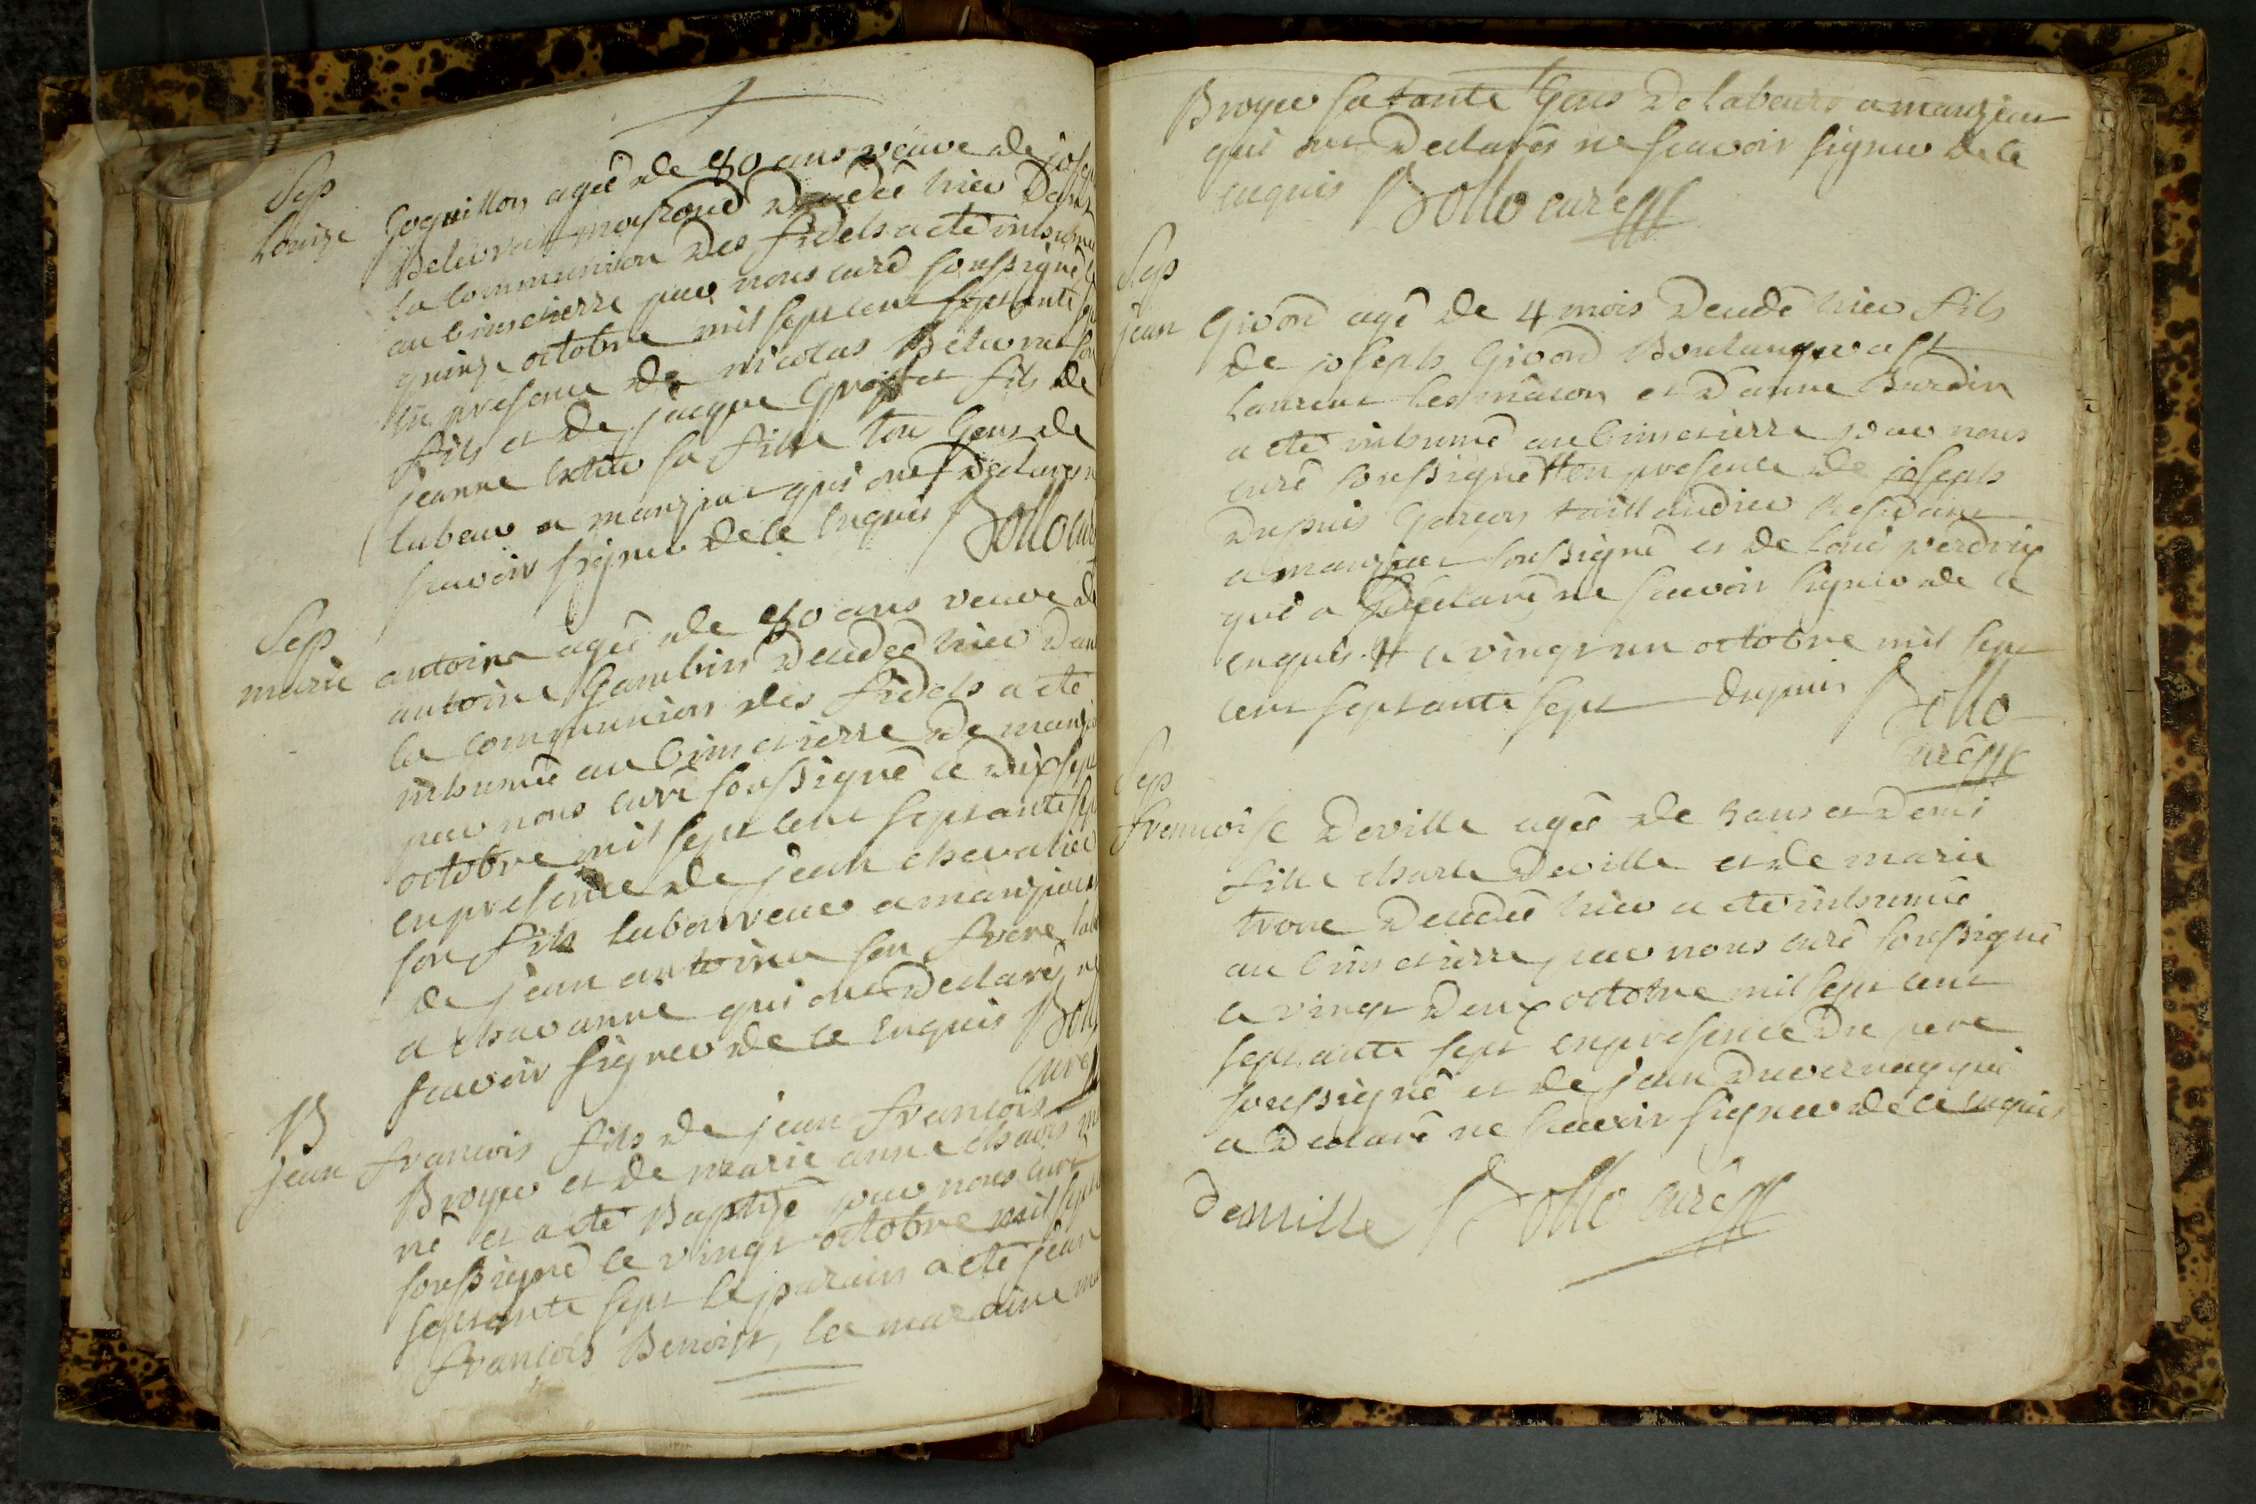 Sep
Louize Goquillon ageé de 80 ans veuve de josep
Believrat decedeé hier dans
la Communion des fidels a ete inhumeé
au Cimetierre par nous curé soussigné le
quinze octobre mil sept cent septante sep
en presence de nicolas Believrat son
fils et de jacque fils de
jeanne sa fille tou Gens de
labeur a manziat qui ont declarés n
scavoir signer de ce Enquis Bollo curé
Sep
marie antoine ageé de 80 ans veuve d
antoine Gambin decedeé hier dan
la Communion des fidels a eté
inhumeé au Cimetierre de manzi
par nous curé soussigné le dixsept
octobre mil sept cent septante sep
en presence de jean chevalier
son fils laboureur a manziat
de jean antoine son frere lab
a chavanne qui ont declarés n
scavoir signer de ce Enquis Boll
curé
B
jean francois fils de jean francois
Broyer et de marie anne chavis m
né et a eté Baptizé par nous curé
soussigné le vingt octobre mil sept
septante sept le parain a eté jean
francois Benoist, la maraine ma
Broyer sa tante Gens de labeurs a manziat
qui ont declarés ne scavoir signer de ce
enquis Bollo curé
Sep
jean Givord agé de 4 mois decedé hier fils
de joseph Givord Boulanger a St
Laurent les mâcon et d'anne Burdin
a eté inhumé au Cimetierre par nous
curé soussigné # en presence de joseph
Dupuis Garçon taillandier Residant
a manziat soussigné et de Louis perdrix
qui a declaré ne scavoir signer de ce
enquis. # le vingt un octobre mil sept
cent septante sept Dupuis Bollo
curé
Sep
francoise Deville ageé de 3 ans et demi
fille charle Deville et de marie
trone decedeé hier a eté inhumeé
au Cimetierre par nous curé soussigné
le vingt deux octobre mil sept cent
septante sept en presence du pere
soussigné et de jean Duvernay qui
a declaré ne scavoir signer de ce enquis
Demille Bollo curé